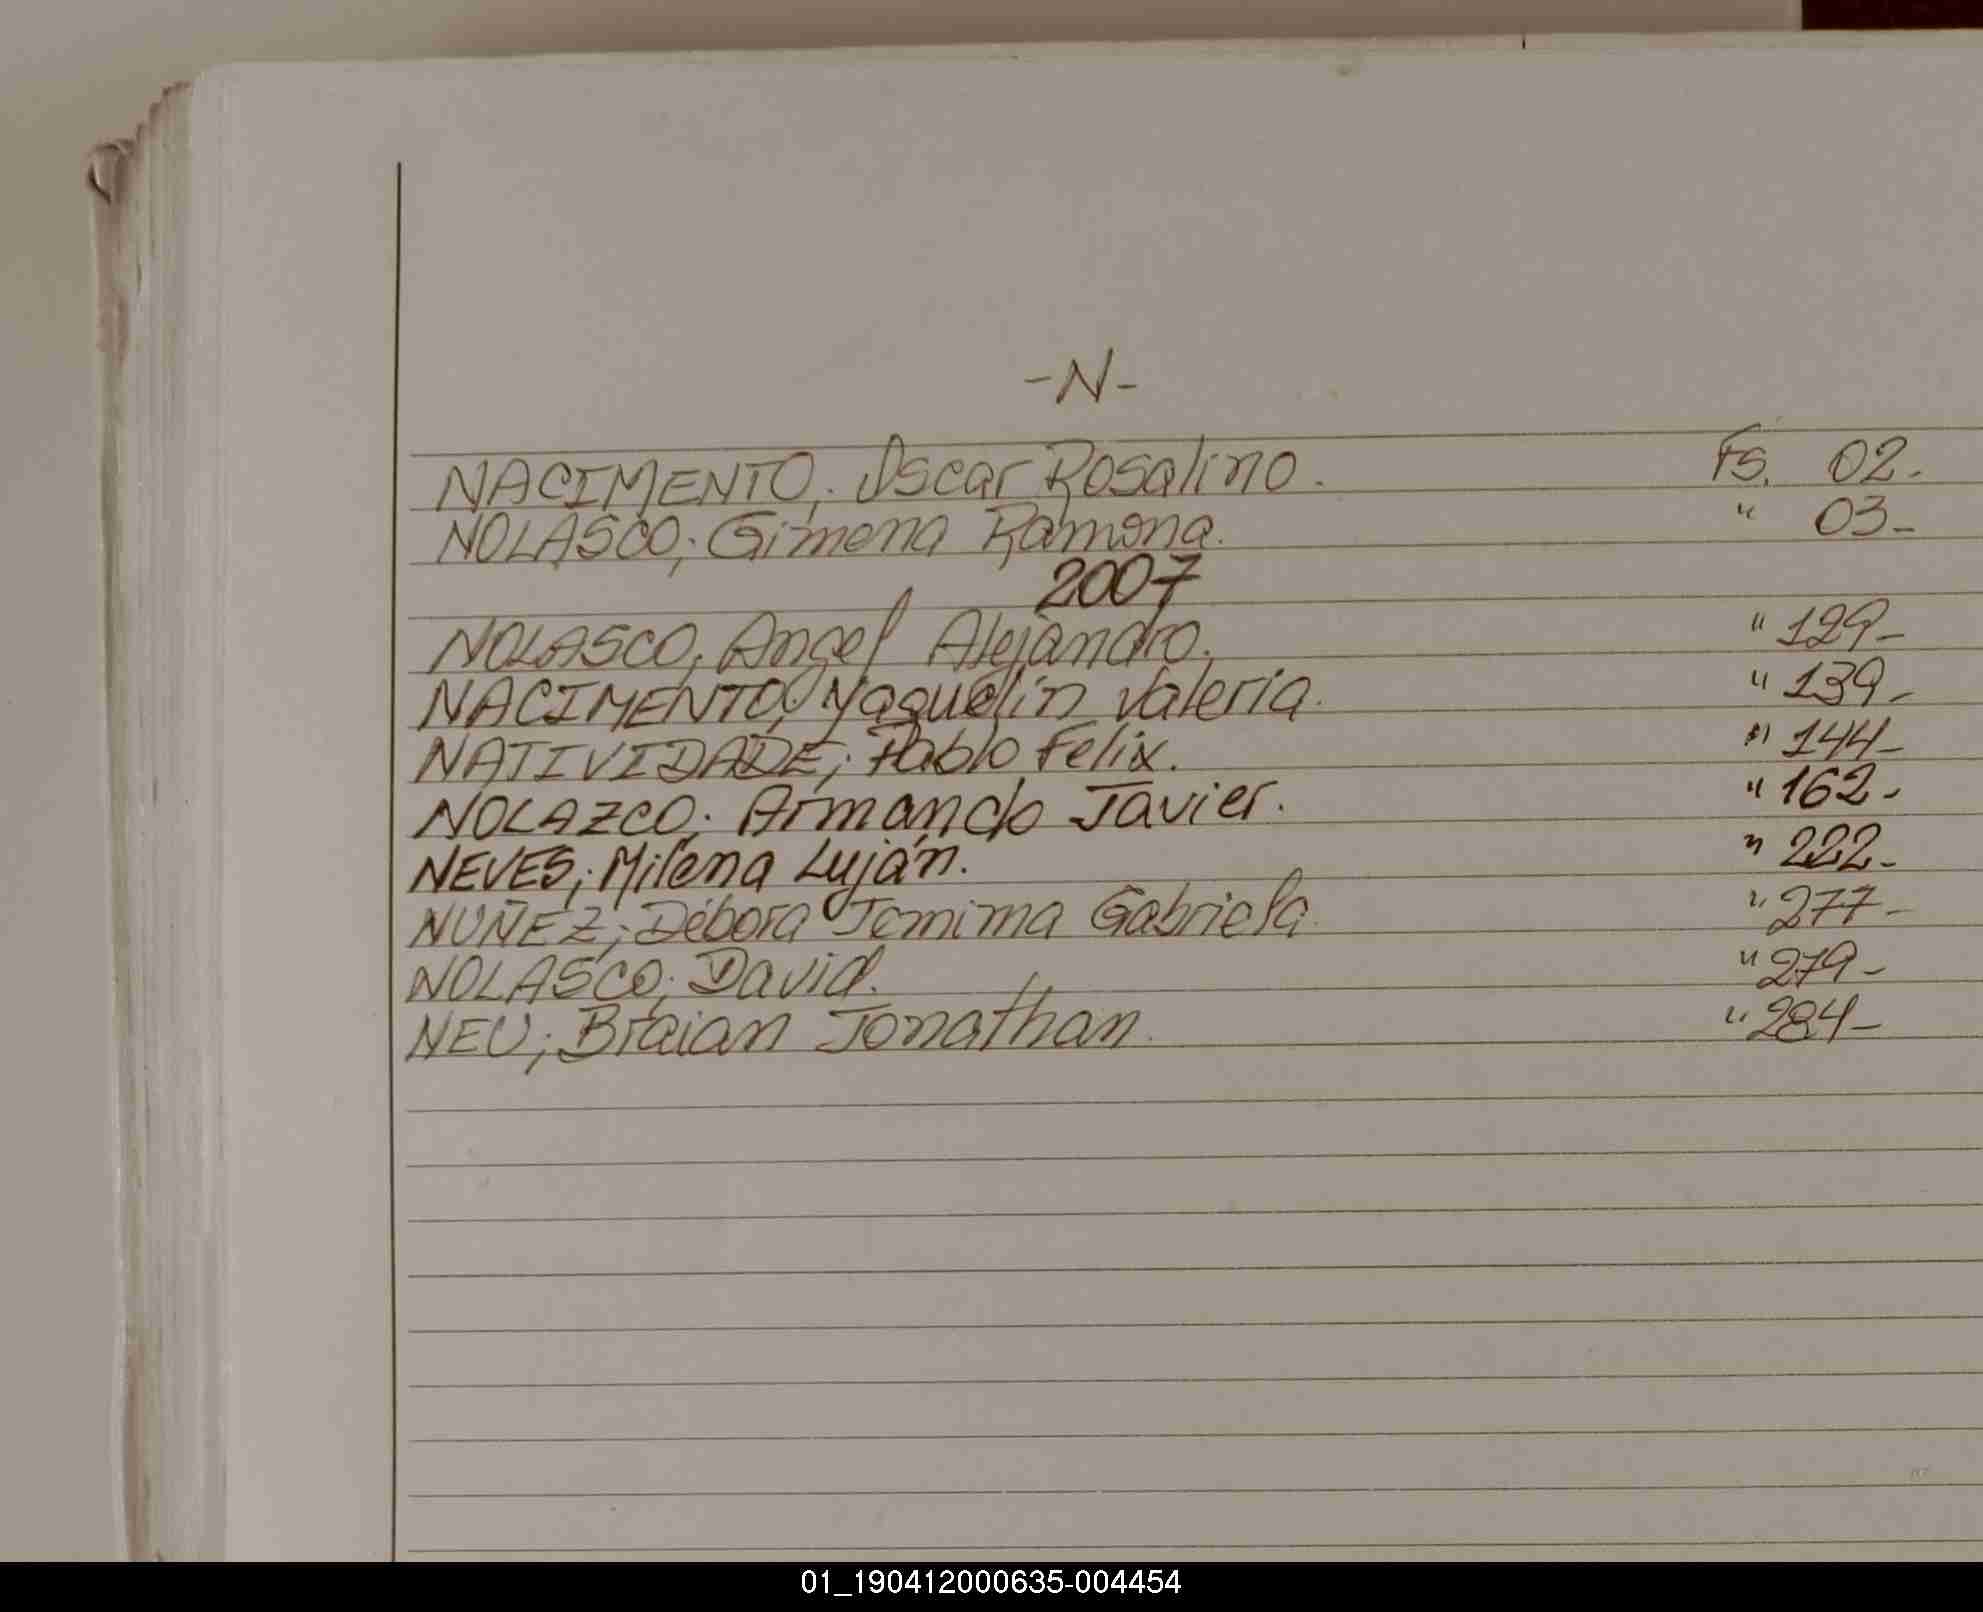 -N-
NACIMENTO; Oscar Rosalino. Fs. 02.
NOLASCO; Gimena Ramona. " 03-
2007
NOLASCO; Angel Alejandro. " 129-
NACIMENTO; Yaquelin Valeria. " 139-
NATIVIDADE; Pablo Felix. " 144-
NOLAZCO; Armando Javier. " 162-
NEVES; Milena Luján. " 222-
NUÑEZ; Débora Jemima Gabriela. " 277-
NOLASCO; David. " 279-
NEU; Braian Jonathan. " 284-
01_190412000635-004454